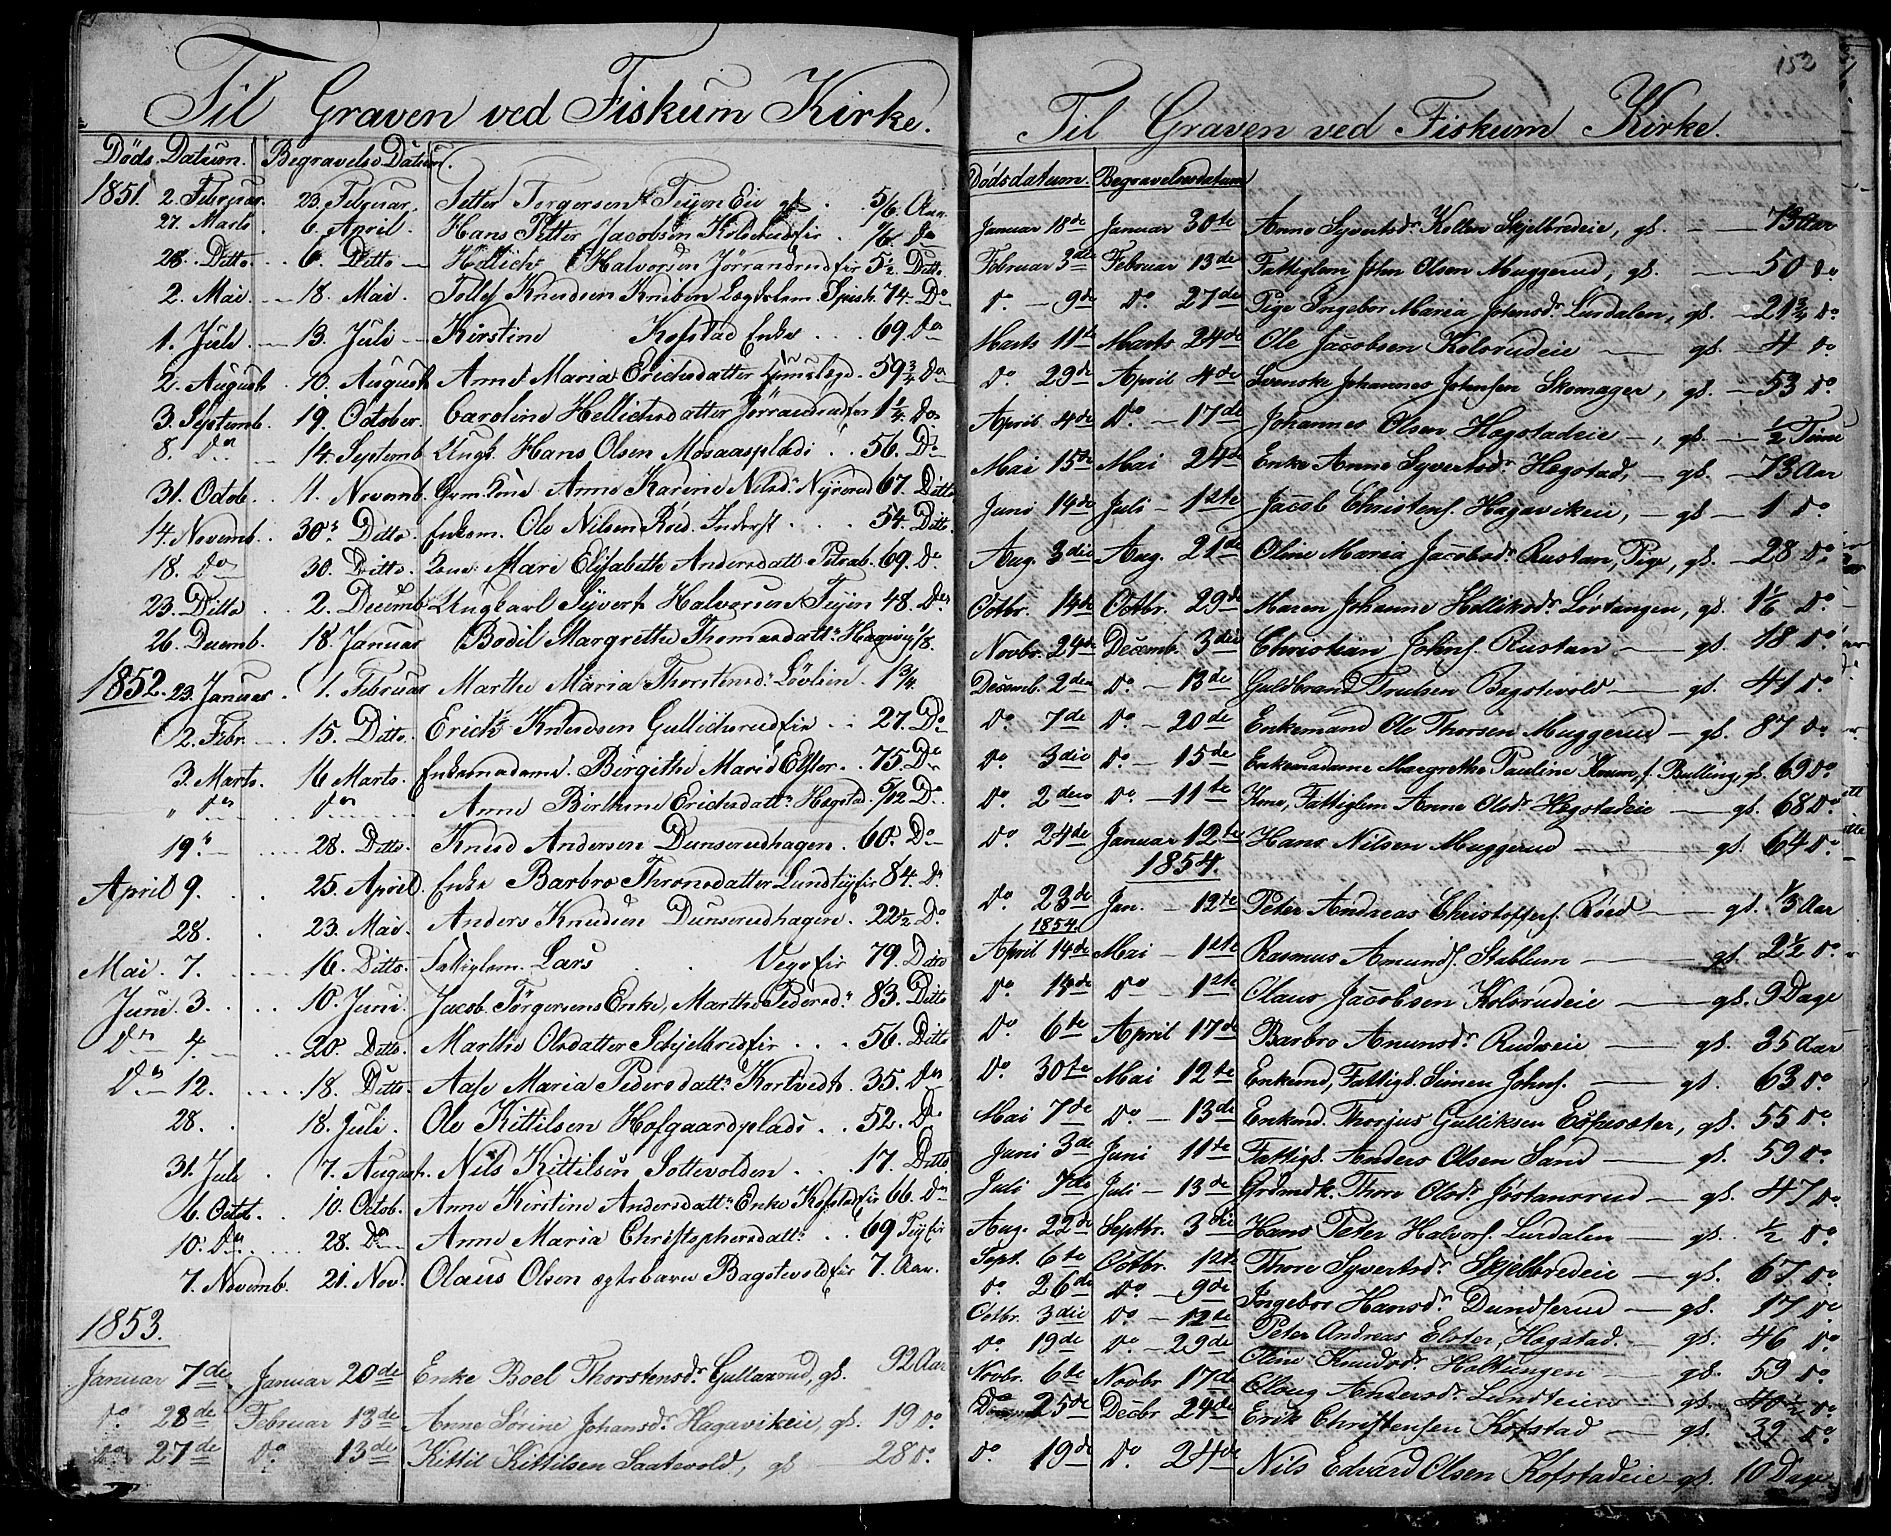 Til Graven ved Fiskum Kirke.
Døds Datum. Begravelse Datum.
1851. 2. Februar. 23. Februar. Petter Torgersen Teigen Eie gl. 5/6. Aar.
27. Marts. 6. April. Hans Petter Jacobsen Kolsrudeie. Do
28. Ditto. 6. Ditto Hellich Halvorsen Jørrandrudeie 5½ Ditto
2. Mai. 18. Mai. Tollef Knudsen Lægdslem 74. Do
1. Juli. 13. Juli Kirstine Kofstad Enke 69. Do
2. August. 10. August Anne Maria Erichsdatter 59¾ Do
3. Septemb. 19. October. Caroline Hellichsdatter Jørrandrudeie 1¼. Do
8. Do 14. Septemb Ungk. Hans Olsen Mosaasplads 56. Do
31. Octob. 1. Novemb. Gvm. Kone Anne Karine Nilsd. 67. Ditto
14. Novemb. 30. Ditto. Enkem. Ole Nilsen Røed. Inderst. 54. Ditto.
18. Do 30. Ditto. Kone Mari Elisabethe Andersdatt. 69. Do
23. Ditto 2. Decemb. Ungkarl Syvert Halvorsen Teigen 48. Do
26. Decemb. 18. Januar Bodil Margrethe Thomasdatt. Hagavig 1/8.
1852. 23. Januar. 1. Februar Marthe Maria Thorstensd. Løvlien. 1¾.
2. Febr. 15. Ditto. Erich Knudsen Gullichsrudeie 27. Do
3. Marts. 16 Marts. Enkemadame. Birgithe Marie Elster. 75. Do
" Do Do Anne Birthine Erichsdatt. Hogstad. 5/12. Do
19. " 28. Ditto. Knud Andersen Dunserudhagen. 60. Do
April 9. 25. April. Enke Barbro Thronsdatter Lundteigeie 84. Do
28. 23. Mai. Anders Knudsen Dunserudhagen. 22½. Do
Mai. 7. 16. Ditto. Fattiglem. Lars Vegoeie 79. Ditto
Juni. 3. 10. Juni. Jacob Torgersens Enke, Marthe Pedersd. 83. Ditto
Do 4. 20. Ditto. Marthe Olsdatter Schjelbredeie 56. Ditto
Do 12. 18. Ditto Aase Maria Pedersdatt. Kortvedt. 35. Do
28. 18. Juli. Ole Kittilsen Hofgaardplads 52. Do
31. Juli 7. August. Nils Kittilsen Sottevolden 17. Ditto
6. Octob. 10. Octob. Anne Kirstine Andersdatt. Enke Kofstadeie 66. Do
10. Do 28. Do Anne Maria Christophersdatt. 69 Teigeie
7. Novemb. 21. Nov. Olaus Olsen ægtebarn Bagstevoldeie 7. Aar.
1853.
Januar 7de Januar 20de Enke Boel Thorstensdr. Gullaxrud, gl. 92 Aar
do 28de Februar 13de Anne Sorine Johansdr. Hagavikeie, gl. 19 do
do 27de Do 13de Kittil Kittilsen Saatvold, gl 28 do.
152
Til Graven ved Fiskum Kirke.
Dødsdatum. Begravelsesdatum
Januar 18de Januar 30te Anne Syvertsdr. Kolten Skjelbredeie, gl. 73 Aar
Februar 3die Februar 13de Fattiglem John Olsen Muggerud, gl. 50 do
do 9de do 27de Pige Ingebor Maria Johnsdr. Lurdalen, gl. 21¾ do
Marts 11te Marts 24de Ole Jacobsen Kolsrudeie gl. 4 do
do 29de April 4de Svenske Johannes Johnsen Skomager, gl. 53 do
April 4de do 17de Johannes Olsen Hogstadeie, gl. ½ Time
Mai 15de Mai 24de Enke Anne Syvertsdr. Hogstad, gl. 73 Aar
Juni 14de Juli 1ste Jacob Christens. Hagavikeie, gl 1 do
Aug. 3die Aug. 21de Oline Maria Jacobsdr. Rustan, Pige, gl. 28 do
Octbr. 14de Octbr. 29de Maren Johanne Helliksdr. Lørtangen, gl. 1 1/6 do
Novbr. 24de Decemb. 3die Christian Johns. Rustan gl. 18 do
Decemb. 2den do 13de Guldbrand Trulsen Bagstevold gl. 41 do
do 7de do 20de Enkemand Ole Thorsen Muggerud gl. 87 do
do 3die do 15de Enkemadame Margrethe Pauline Krum, f. Bulling, gl. 69 do
do 2den do 11te Kone, Fattiglem Anne Olsdr. Hogstadeie gl. 68 do
do 24de Januar 12te Hans Nilsen Muggerud gl. 64 do
1854.
do 28de Jan. 12te Peter Andreas Christoffers. Røed gl. ⅓ Aar
1854.
April 14de Mai 1ste Rasmus Amunds. Stablum gl. 2½ do
do 14de do 1ste Olaus Jacobsen Kolsrudeie gl. 9 Dage
do 6te April 17de Barbro Amunsdr. Rudseie gl. 35 Aar
do 30te Mai 12te Enkemd, Fattigl. Simen Johns. gl. 63 do
Mai 7de do 13de Enkemd. Thorjus Gulliksen Espesæter, gl. 55 do
Juni 3de Juni 11te Fattigl. Anders Olsen Sand gl. 59 do
Juli 7de Juli 13de Grdmdk. Thore Olsdr. Jøtansrud gl. 47 do
Aug. 22de Septbr. 3die Hans Peter Halvors. Lurdalen gl. ½ do
Sept. 6te Octbr. 1ste Thore Syvertsdr. Skjelbredeie gl. 67 do
do 26de do 9de Ingebor Hansdr. Dundserud gl. 17 do
Octbr. 3die do 12te Peter Andreas Elster, Hogstad. gl. 46 do
do 19de do 29de Oline Knudsdr. Holtungen gl. 59 do
Novbr. 6te Novbr. 17de Olaug Andersdr. Lundteien gl. 40½ do
25de Decbr. 24de Erik Christensen Kofstad gl. 39 do
do 19de do 24de Nils Edvard Olsen Kofstadeie gl. 10 Dage